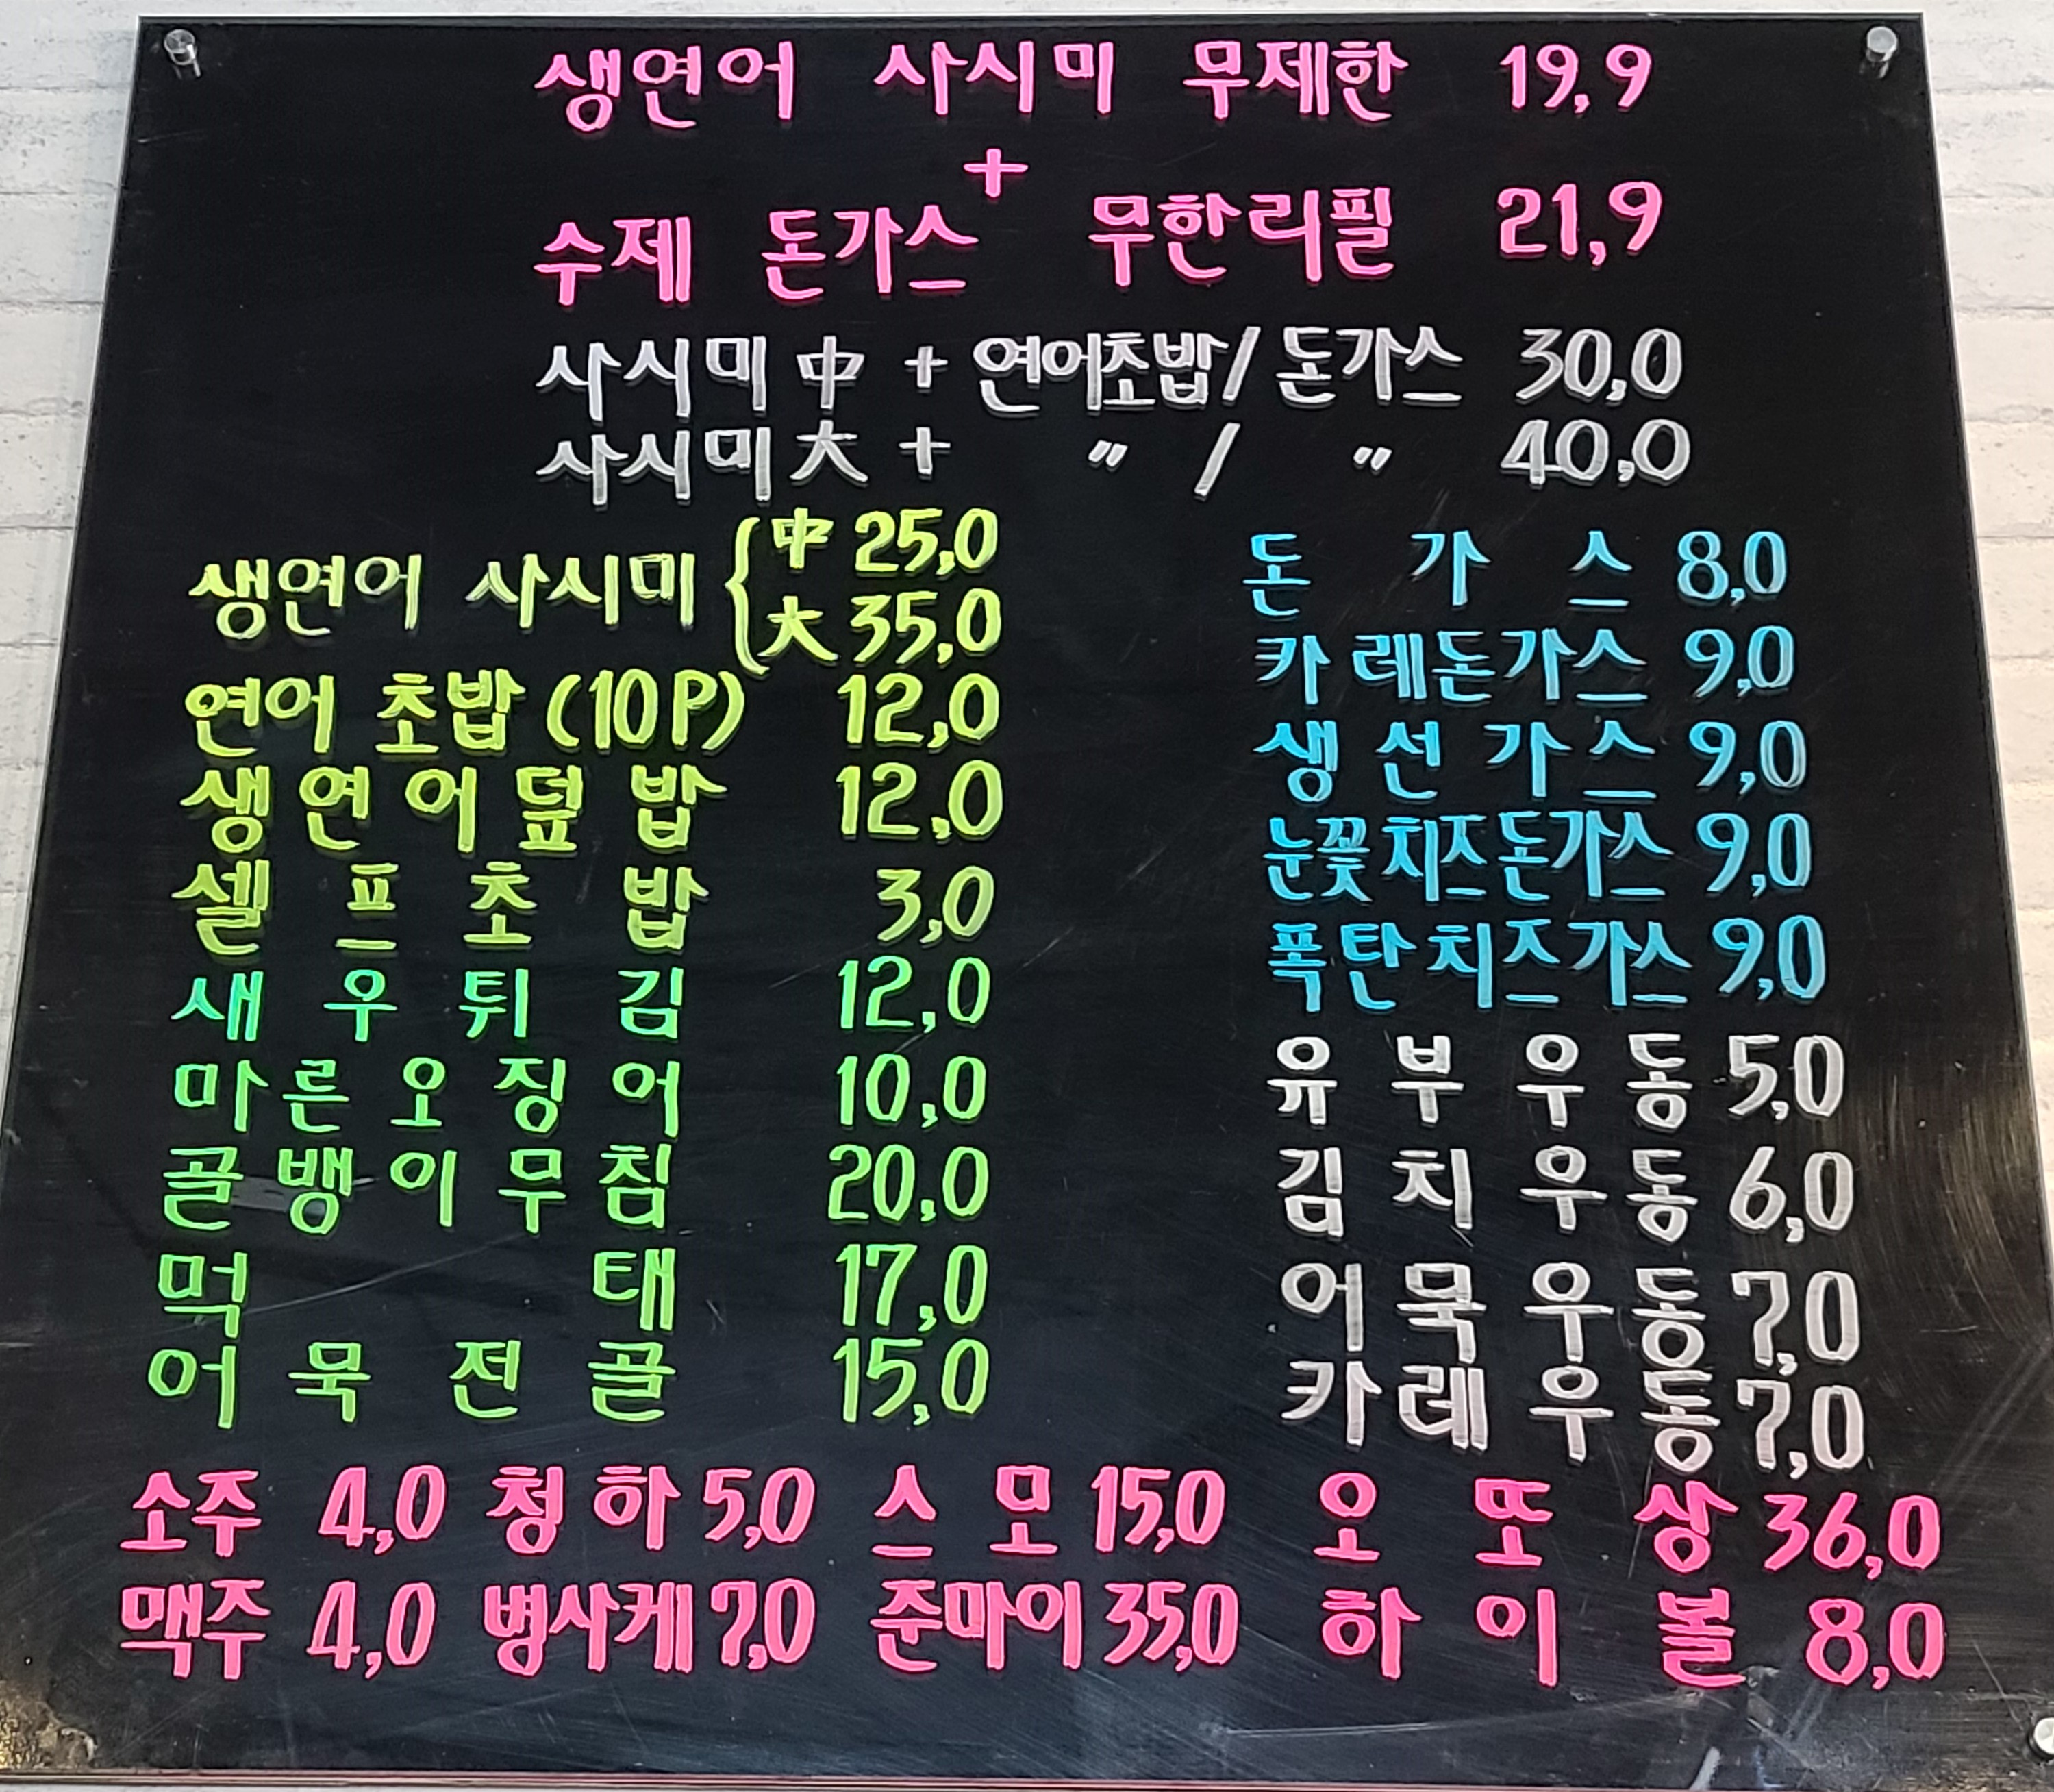 생연어 사시미 무제한 19,9
+
수제 돈가스 무한리필 21,9
사시미 中 + 연어초밥/돈가스 30,0
사시미 大 + 〃 / 〃 40,0
생연어 사시미 { 中 25,0
大 35,0
연어 초밥 (10P) 12,0
생연어덮밥 12,0
셀프초밥 3,0
새우튀김 12,0
마른오징어 10,0
골뱅이무침 20,0
먹태 17,0
어묵전골 15,0
돈가스 8,0
카레돈가스 9,0
생선가스 9,0
눈꽃치즈돈가스 9,0
폭탄치즈가스 9,0
유부우동 5,0
김치우동 6,0
어묵우동 7,0
카레우동 7,0
소주 4,0 청하 5,0 스모 15,0 오또상 36,0
맥주 4,0 병사케 7,0 준마이 35,0 하이볼 8,0